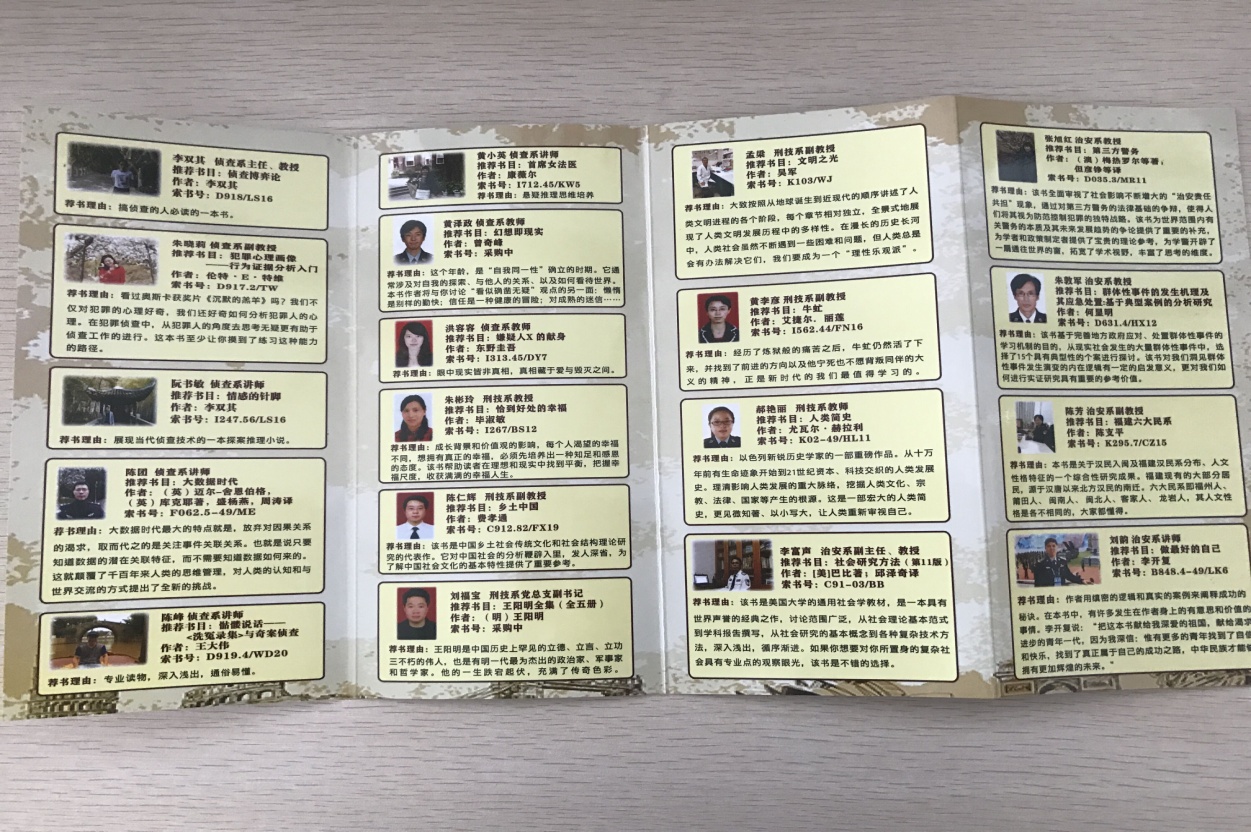 李双其 侦查系主任、教授
推荐书目：侦查博弈论
作者：李双其
索书号：D918/LS16
荐书理由：搞侦查的人必读的一本书。
朱晓莉 侦查系副教授
推荐书目：犯罪心理画像
——行为证据分析入门
作者：伦特·E·特维
索书号：D917.2/TW
荐书理由：看过奥斯卡获奖片《沉默的羔羊》吗？我们不
仅对犯罪的心理好奇。我们还好奇如何分析犯罪人的心
理。在犯罪侦查中，从犯罪人的角度去思考无疑更有助于
侦查工作的进行。这本书至少让你摸到了练习这种能力
的路径。
阮书敏 侦查系讲师
推荐书目：情感的针脚
作者：李双其
索书号：I247.56/LS16
荐书理由：展现当代侦查技术的一本探案推理小说。
陈团 侦查系讲师
推荐书目：大数据时代
作者：（英）迈尔-舍恩伯格，
（英）库克耶著，盛杨燕，周涛译
索书号：F062.5-49/ME
荐书理由：大数据时代最大的特点就是，放弃对因果关系
的渴求，取而代之的是关注事件关联关系。也就是说只要
知道数据的潜在关联特征，而不需要知道数据如何来的。
这就颠覆了千百年来人类的思维管理，对人类的认知和与
世界交流的方式提出了全新的挑战。
陈峰 侦查系讲师
推荐书目：骷髅说话——
<洗冤录集>与奇案侦查
作者：王大伟
索书号：D919.4/WD20
荐书理由：专业读物，深入浅出，通俗易懂。
黄小英 侦查系讲师
推荐书目：首席女法医
作者：康薇尔
索书号：I712.45/KW5
荐书理由：悬疑推理思维培养
黄泽政 侦查系教师
推荐书目：幻想即现实
作者：曾奇峰
索书号：采购中
荐书理由：这个年龄，是“自我同一性”确立的时期。它通
常涉及对自我的探索、与他人的关系、以及如何看待世界。
本书作者将与你讨论“看似确凿无疑”观点的另一面：懒惰
是别样的勤快；信任是一种健康的冒险；对成熟的迷信……
洪容容 侦查系教师
推荐书目：嫌疑人X 的献身
作者：东野圭吾
索书号：I313.45/DY7
荐书理由：眼中现实皆非真相，真相藏于爱与毁灭之间。
朱彬玲 刑技系教师
推荐书目：恰到好处的幸福
作者：毕淑敏
索书号：I267/BS12
荐书理由：成长背景和价值观的影响，每个人渴望的幸福
不同，想拥有真正的幸福，必须先培养出一种知足和感恩
的态度。该书帮助读者在理想和现实中找到平衡，把握幸
福尺度，收获满满的幸福人生。
陈仁辉 刑技系副教授
推荐书目：乡土中国
作者：费孝通
索书号：C912.82/FX19
荐书理由：该书是中国乡土社会传统文化和社会结构理论研
究的代表作。它对中国社会的分析鞭辟入里，发人深省，为
了解中国社会文化的基本特性提供了重要参考。
刘福宝 刑技系党总支副书记
推荐书目：王阳明全集（全五册）
作者：（明）王阳明
索书号：采购中
荐书理由：王阳明是中国历史上罕见的立德、立言、立功
三不朽的伟人，也是有明一代最为杰出的政治家、军事家
和哲学家。他的一生跌宕起伏，充满了传奇色彩。
孟梁 刑技系副教授
推荐书目：文明之光
作者：吴军
索书号：K103/WJ
荐书理由：大致按照从地球诞生到近现代的顺序讲述了人
类文明进程的各个阶段，每个章节相对独立，全景式地展
现了人类文明发展历程中的多样性。在漫长的历史长河
中，人类社会虽然不断遇到一些困难和问题，但人类总是
会有办法解决它们，我们要成为一个“理性乐观派”。
黄李彦 刑技系副教授
推荐书目：牛虻
作者：艾捷尔．丽莲
索书号：I562.44/FN16
荐书理由：经历了炼狱般的痛苦之后，牛虻仍然活了下
来，并找到了前进的方向以及他宁死也不愿背叛同伴的大
义的精神，正是新时代的我们最值得学习的。
郝艳丽 刑技系教师
推荐书目：人类简史
作者：尤瓦尔·赫拉利
索书号：K02-49/HL11
荐书理由：以色列新锐历史学家的一部重磅作品。从十万
年前有生命迹象开始到21世纪资本、科技交织的人类发展
史。理清影响人类发展的重大脉络，挖掘人类文化、宗
教、法律、国家等产生的根源。这是一部宏大的人类简
史，更见微知著、以小写大，让人类重新审视自己。
李富声 治安系副主任、教授
推荐书目：社会研究方法（第11版）
作者：[美]巴比著；邱泽奇译
索书号：C91-03/BB
荐书理由：该书是美国大学的通用社会学教材，是一本具有
世界声誉的经典之作，讨论范围广泛，从社会理论基本范式
到学科报告撰写，从社会研究的基本概念到各种复杂技术方
法，深入浅出，循序渐进。如果你想要对你所置身的复杂社
会具有专业点的观察眼光，该书是不错的选择。
张旭红 治安系教授
推荐书目：第三方警务
作者：（澳）梅热罗尔等著；
但彦铮等译
索书号：D035.3/MR11
荐书理由：该书全面审视了社会影响不断增大的“治安责任
共担”现象，通过对第三方警务的法律基础的争辩，使得人
们将其视为防范控制犯罪的独特战略。该书为世界范围内有
关警务的本质及其未来发展趋势的争论提供了重要的补充，
为学者和政策制定者提供了宝贵的理论参考，为学警开辟了
一扇通往世界的窗，拓宽了学术视野，丰富了思考的维度。
朱敦军 治安系副教授
推荐书目：群体性事件的发生机理及
其应急处置:基于典型案例的分析研究
作者：何显明
索书号：D631.4/HX12
荐书理由：该书基于完善地方政府应对、处置群体性事件的
学习机制的目的，从现实社会发生的大量群体性事件中，选
择了15个具有典型性的个案进行探讨。该书对我们洞见群体
性事件发生演变的内在逻辑有一定的启发意义，更对我们如
何进行实证研究具有重要的参考价值。
陈芳 治安系副教授
推荐书目：福建六大民系
作者：陈支平
索书号：K295.7/CZ15
荐书理由：本书是关于汉民入闽及福建汉民系分布、人文
性格特征的一个综合性研究成果。福建现有的大部分居
民，源于汉唐以来北方汉民的南迁。六大民系即福州人、
莆田人、闽南人、闽北人、客家人、龙岩人，其人文性
格是各不相同的，大家都懂得。
刘韵 治安系讲师
推荐书目：做最好的自己
作者：李开复
索书号：B848.4-49/LK6
荐书理由：作者用缜密的逻辑和真实的案例来阐释成功的
秘诀。在本书中，有许多发生在作者身上的有意思和价值的
事情。李开复说：“把这本书献给我深爱的祖国，献给渴求
进步的青年一代，因为我深信：惟有更多的青年找到了自信
和快乐，找到了真正属于自己的成功之路，中华民族才能够
拥有更加辉煌的未来。”